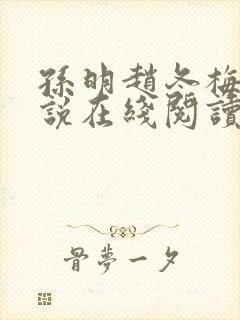 孫明趙冬梅
說在綫閱讀
骨夢一夕